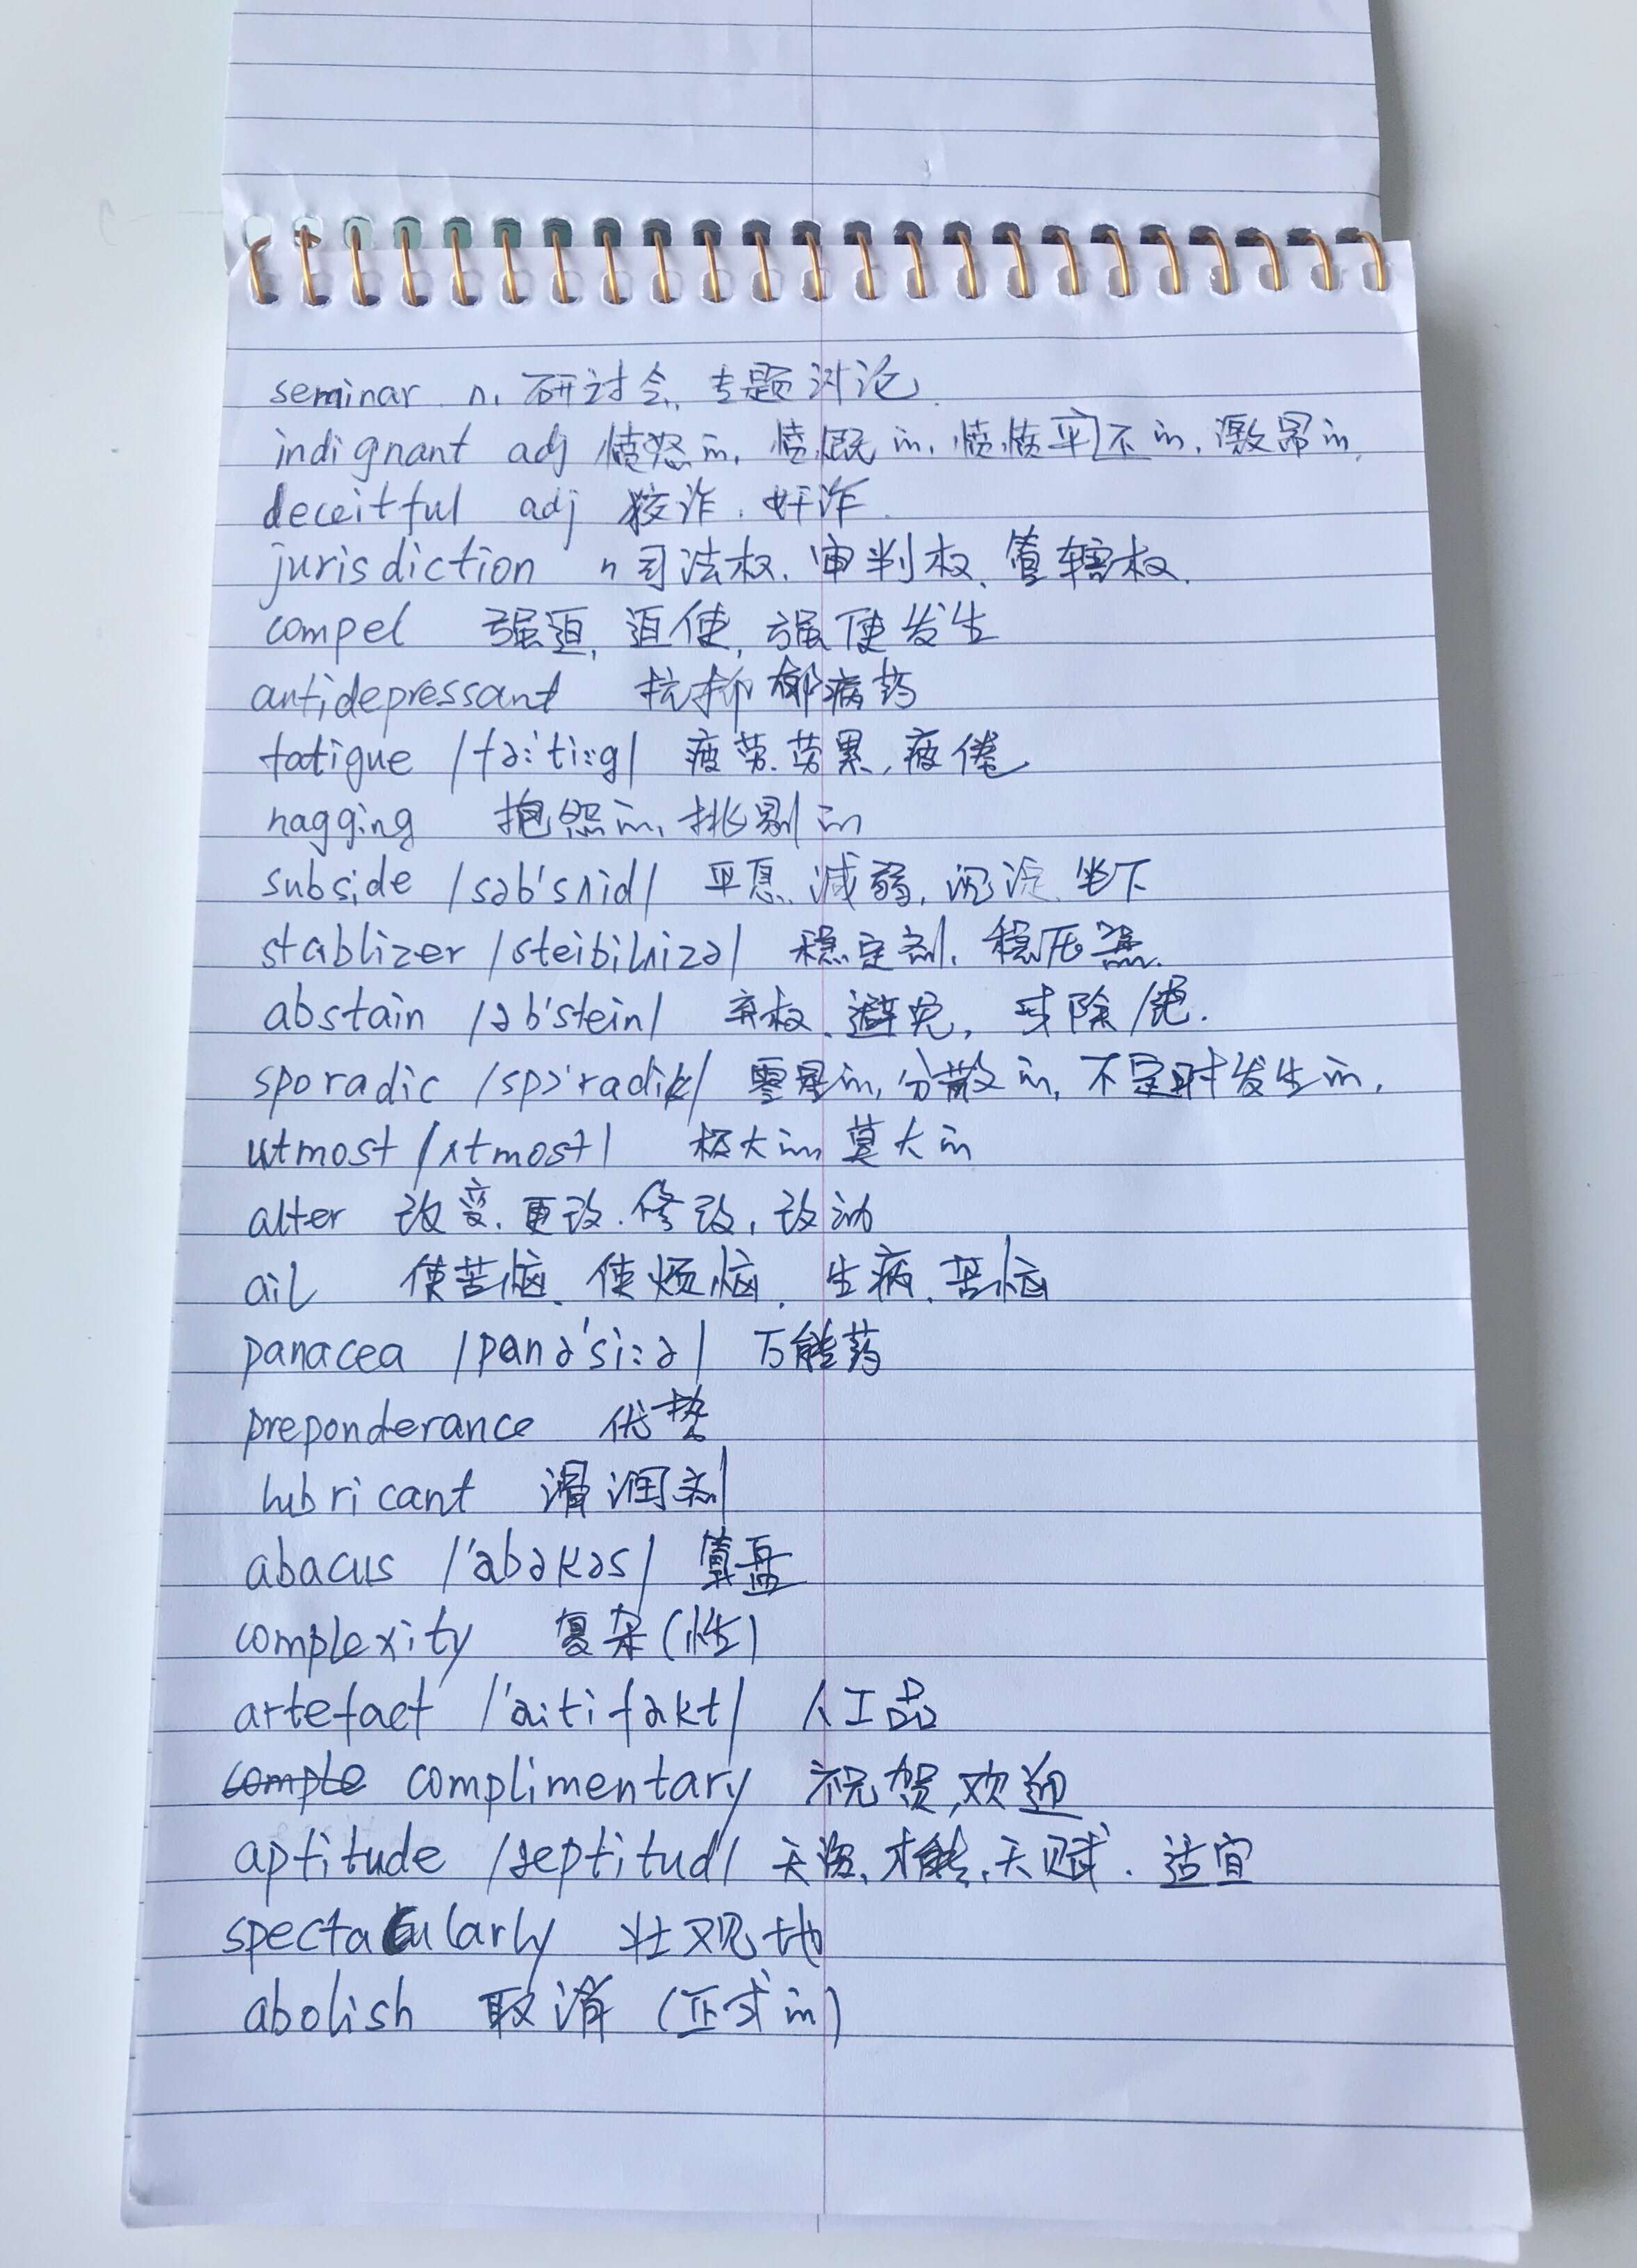 seminar n. 研讨会、专题讨论.
indignant adj 愤怒的, 愤慨的, 愤愤平不的, 激昂的,
deceitful adj 狡诈. 奸诈.
jurisdiction n 司法权、审判权、管辖权.
compel 强迫, 迫使, 强使发生
antidepressant 抗抑郁病药
fatigue /fə:'ti:g/ 疲劳. 劳累, 疲倦
nagging 抱怨的, 挑剔的
subside /səb'sʌid/ 平息. 减弱, 沉淀. 坐下
stablizer /steibilʌizə/ 稳定剂, 稳压器.
abstain /əb'stein/ 弃权. 避免, 戒除/绝.
sporadic /spɔ'radik/ 零星的, 分散的, 不定时发生的,
utmost /ʌtmost/ 极大的, 莫大的
alter 改变. 更改. 修改, 改动
ail 使苦恼、使烦恼, 生病. 苦恼
panacea /panə'si:ə/ 万能药
preponderance 优势
lubricant 滑润剂
abacus /'abəkəs/ 算盘
complexity 复杂(性)
artefact /'a:tifakt/ 人工品
comple complimentary 祝贺, 欢迎
aptitude /æptitud/ 天资, 才能, 天赋. 适宜
spectacularly 壮观地
abolish 取消 (正式的)